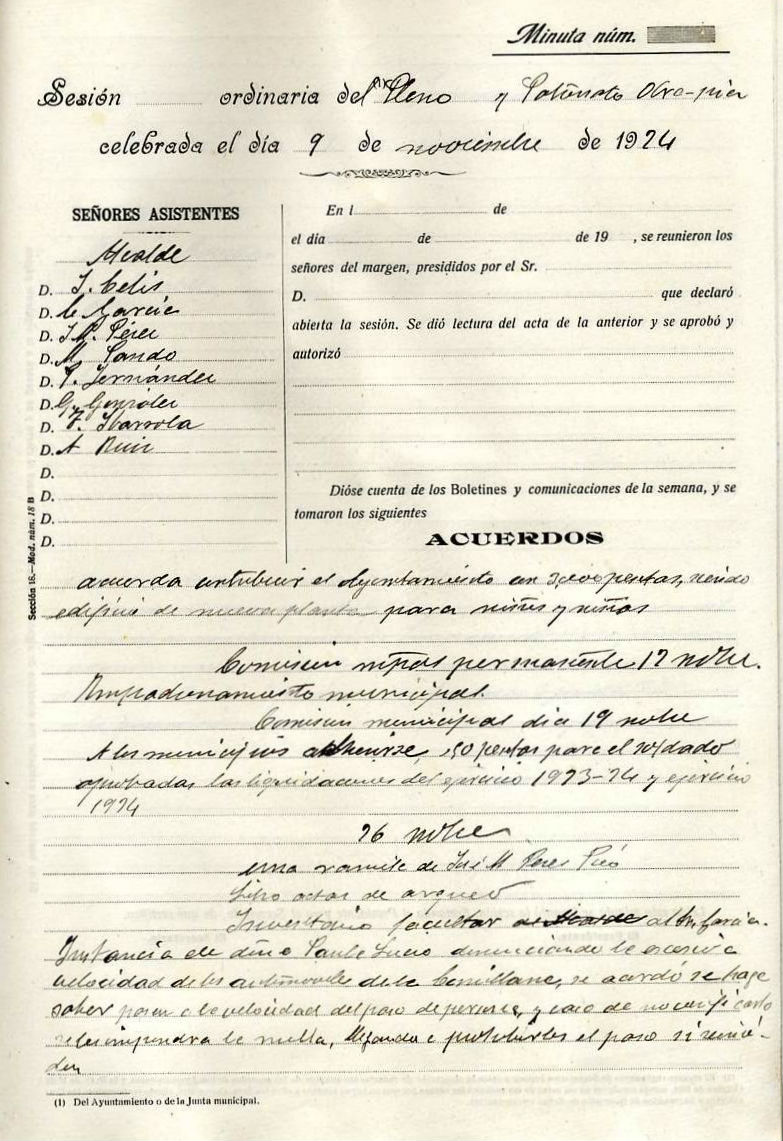 Minuta núm.
Sesión ordinaria del Pleno y Patronato Obra-pia
celebrada el día 9 de noviembre de 1924
SEÑORES ASISTENTES
Alcalde
D. J. Celis
D. C. García
D. J. M. Pérez
D. M. Pando
D. P. Fernández
D. G. González
D. F. Ibarrola
D. A Ruiz
D.
D.
D.
D.
En l de
el día de de 19 , se reunieron los
señores del margen, presididos por el Sr.
D. que declaró
abierta la sesión. Se dió lectura del acta de la anterior y se aprobó y
autorizó
Dióse cuenta de los Boletines y comunicaciones de la semana, y se
tomaron los siguientes
ACUERDOS
Sección 18.—Mod. núm. 18 B
acuerda contribuir el Ayuntamiento con 3,000 pesetas, siendo
edificio de nueva planta para niños y niñas
Comisión permanente 12 nobre.
Empadronamiento municipal.
Comisión municipal día 19 nobre
A los municipios adherirse, 50 pesetas para el soldado
aprobadas las liquidaciones del ejercicio 1923-24 y ejercicio
1924
26 nobre
una de José M Perez
Libro actas de arqueo
Inventario facultar al Sr. García.
Instancia de denunciando la excesiva
velocidad de los automóviles de la Comillana, se acordó se haga
saber pasen a la velocidad del paso de persona, y caso de no verificarlo
se les impondra la multa, llegando a prohibirles el paso si reinci-
den
(1) Del Ayuntamiento o de la Junta municipal.